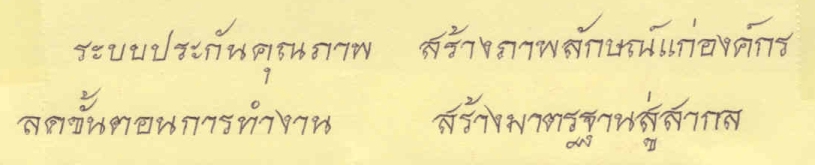 ระบบประกันคุณภาพ สร้างภาพลักษณ์แก่องค์กร
ลดขั้นตอนการทำงาน สร้างมาตรฐานสู่สากล